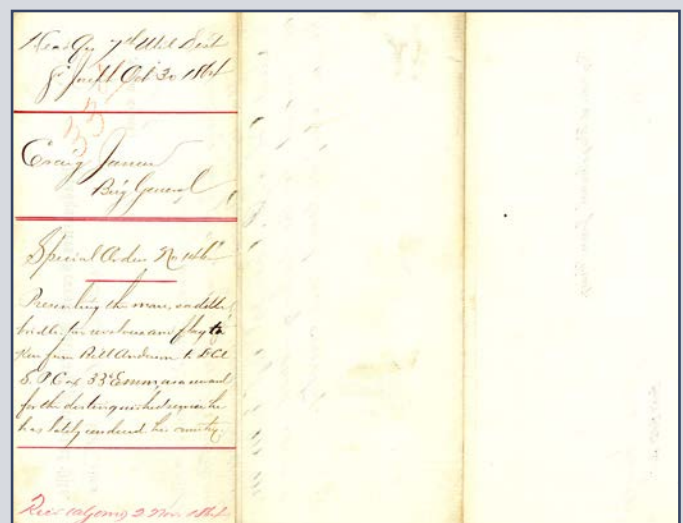 Head Qrs 7th Mil Dist
St Joseph Oct 30 1864
33
Craig James
Brig General
Special Order No 146
Presenting the mare, saddle,
bridle, revolvers and flag ta
ken from Bill Anderson to Lt Col
S. P. Cox 33d Emm, as a reward
for the distinguished service he
has lately rendered his country.
Recd 2 Nov 1864